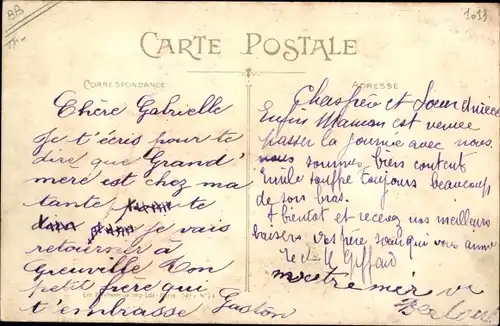 BB
1013
CARTE POSTALE
CORRESPONDANCE
ADRESSE
Chère Gabrielle
Je t'écris pour te
dire que Grand'
mère est chez ma
tante je te
je vais
retourner à
Greuville Ton
petit frère qui
t'embrasse Gaston
Chers frère et Soeur
Enfin Maman est venue
passer la journée avec nous
nous sommes bien contents
Emile souffre toujours beaucoup
de son bras.
A bientôt et recevez nos meilleurs
baisers vos frère soeur qui vous aime
notre mère